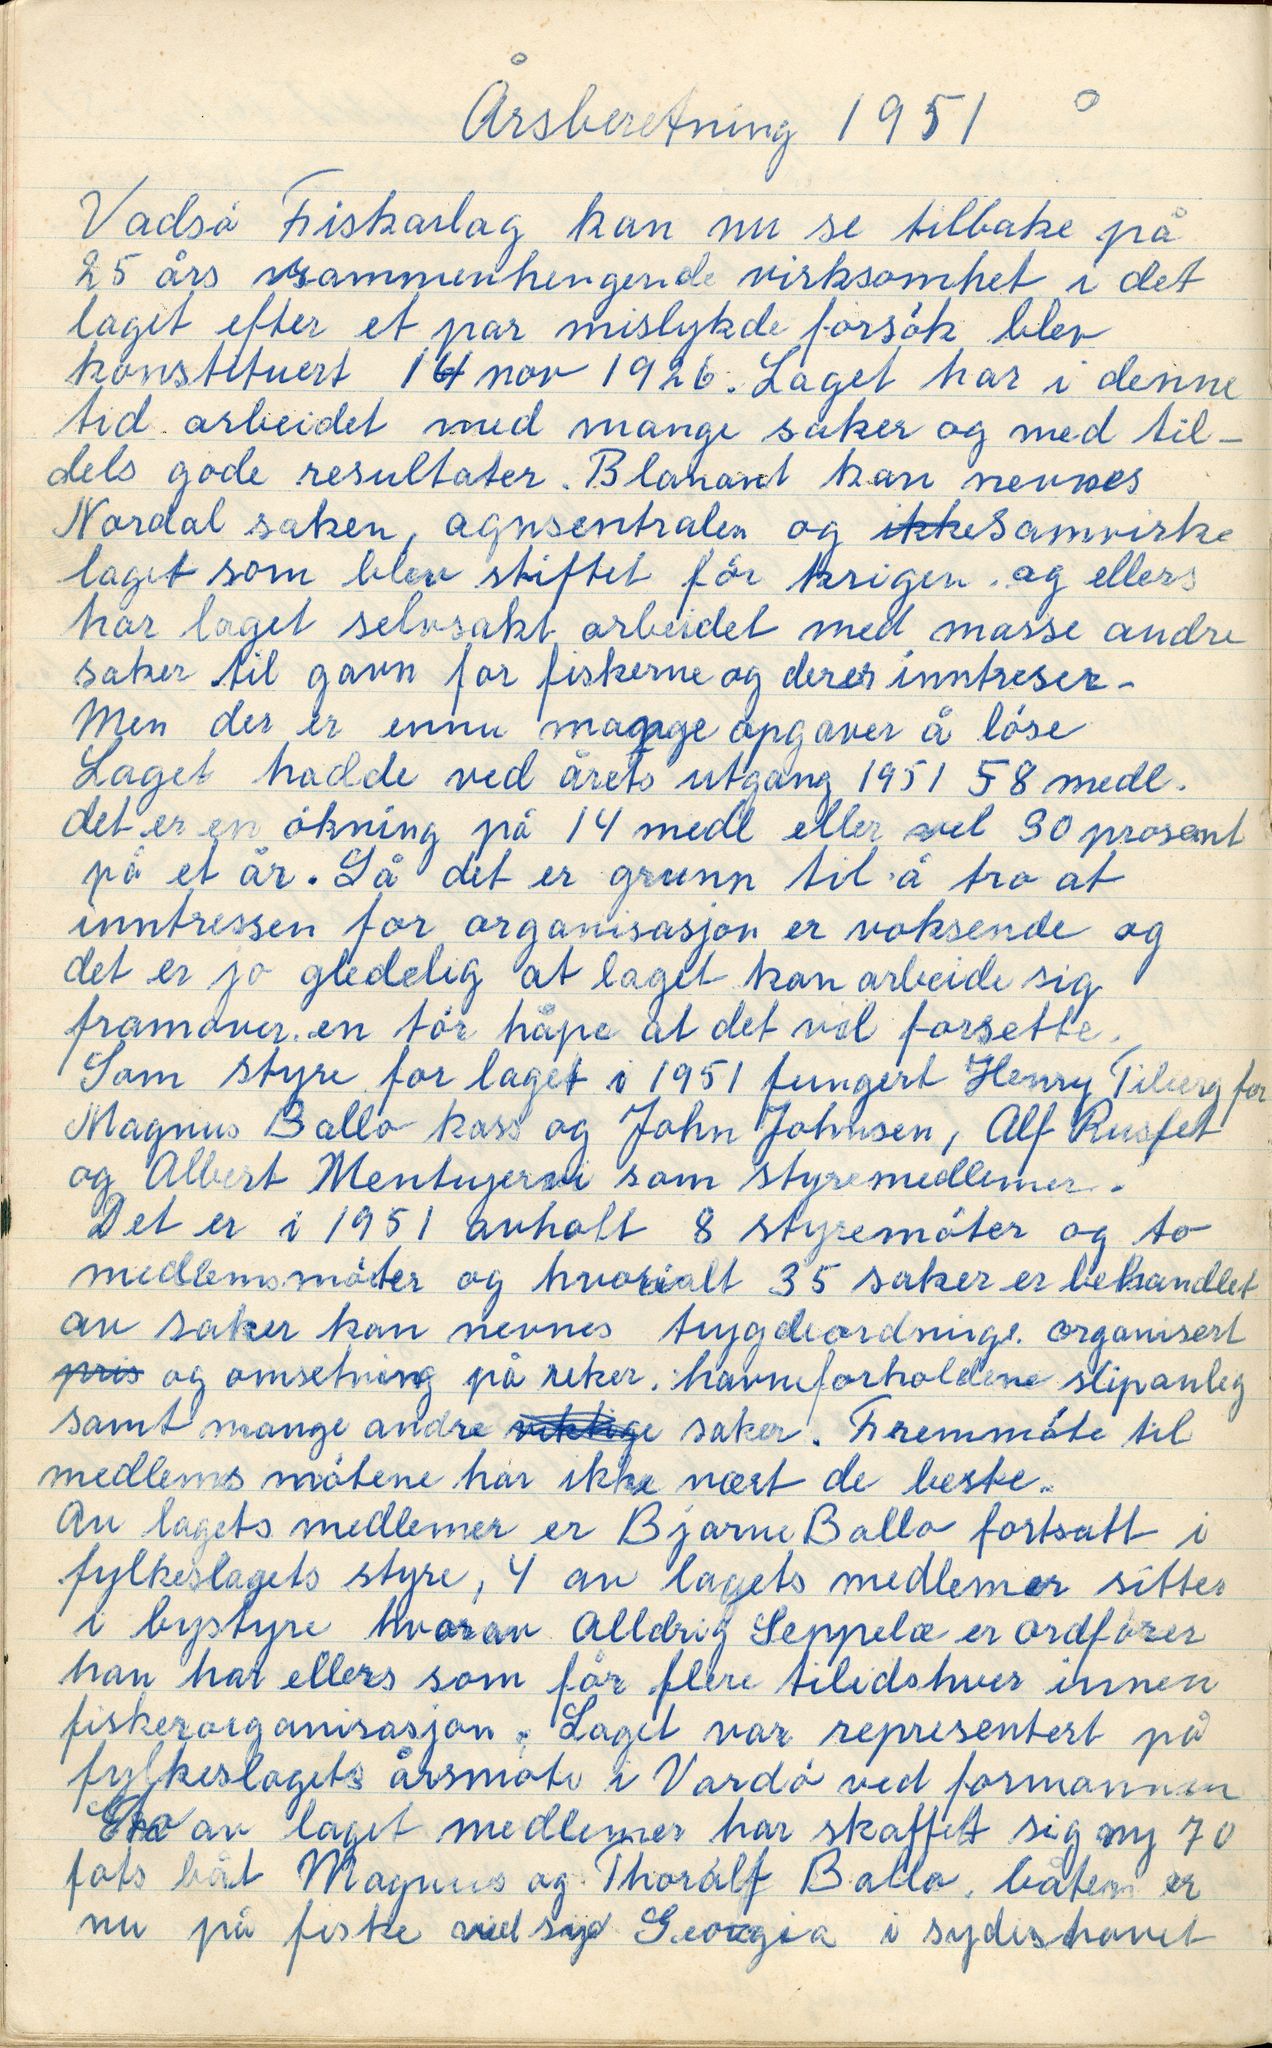 Årsberetning 1951
Vadsö Fiskarlag kan nu se tilbake på
25 års sammenhengende virksomhet i det
laget efter et par mislykde forsök blev
konstituert 14 nov 1926. Laget har i denne
tid arbeidet med mange saker og med til-
dels gode resultater. Blanant kan nevnes
Nordal saken, agnsentralen og ikke samvirke
laget som blev stiftet för krigen. og ellers
har laget selvsakt arbeidet med masse andre
saker til gavn for fiskerne og derer inntreser-
Men der er ennu mange opgaver å löse
Laget hadde ved årets utgang 1951 58 medl.
det er en ökning på 14 medl eller vel 30 prosent
på et år. Så det er grunn til å tro at
inntressen for organisasjon er voksende og
det er jo gledelig at laget kan arbeide sig
framover. en tör håpe at det vil forsette.
Som styre for laget i 1951 fungert Henry Tiberg for
Magnus Ballo kass og John Johnsen, Alf Rusfet
og Albert Mentyjervi som styremedlemer.
Det er i 1951 avholt 8 styremöter og to
medlemsmöter og hvorialt 35 saker er behandlet
av saker kan nevnes trygdeordninge. organisert
pris og omsetning på reker. havneforholdene slipanleg
samt mange andre viktige saker. Fremmöte til
medlems mötene har ikke vært de beste.
Av lagets medlemer er Bjarne Ballo fortsatt i
fylkeslagets styre, 4 av lagets medlemer sitter
i bystyre hvorav Alldrig Seppelæ er ordförer
han har ellers som för flere tilidshver innen
fiskerorganisasjon. Laget var representert på
fylkeslagets årsmöte i Vardö ved formannen
To av laget medlemer har skaffet sig ny 70
fots båt Magnus og Thoralf Ballo. båten er
nu på fiske ved syd Georgia i sydishavet